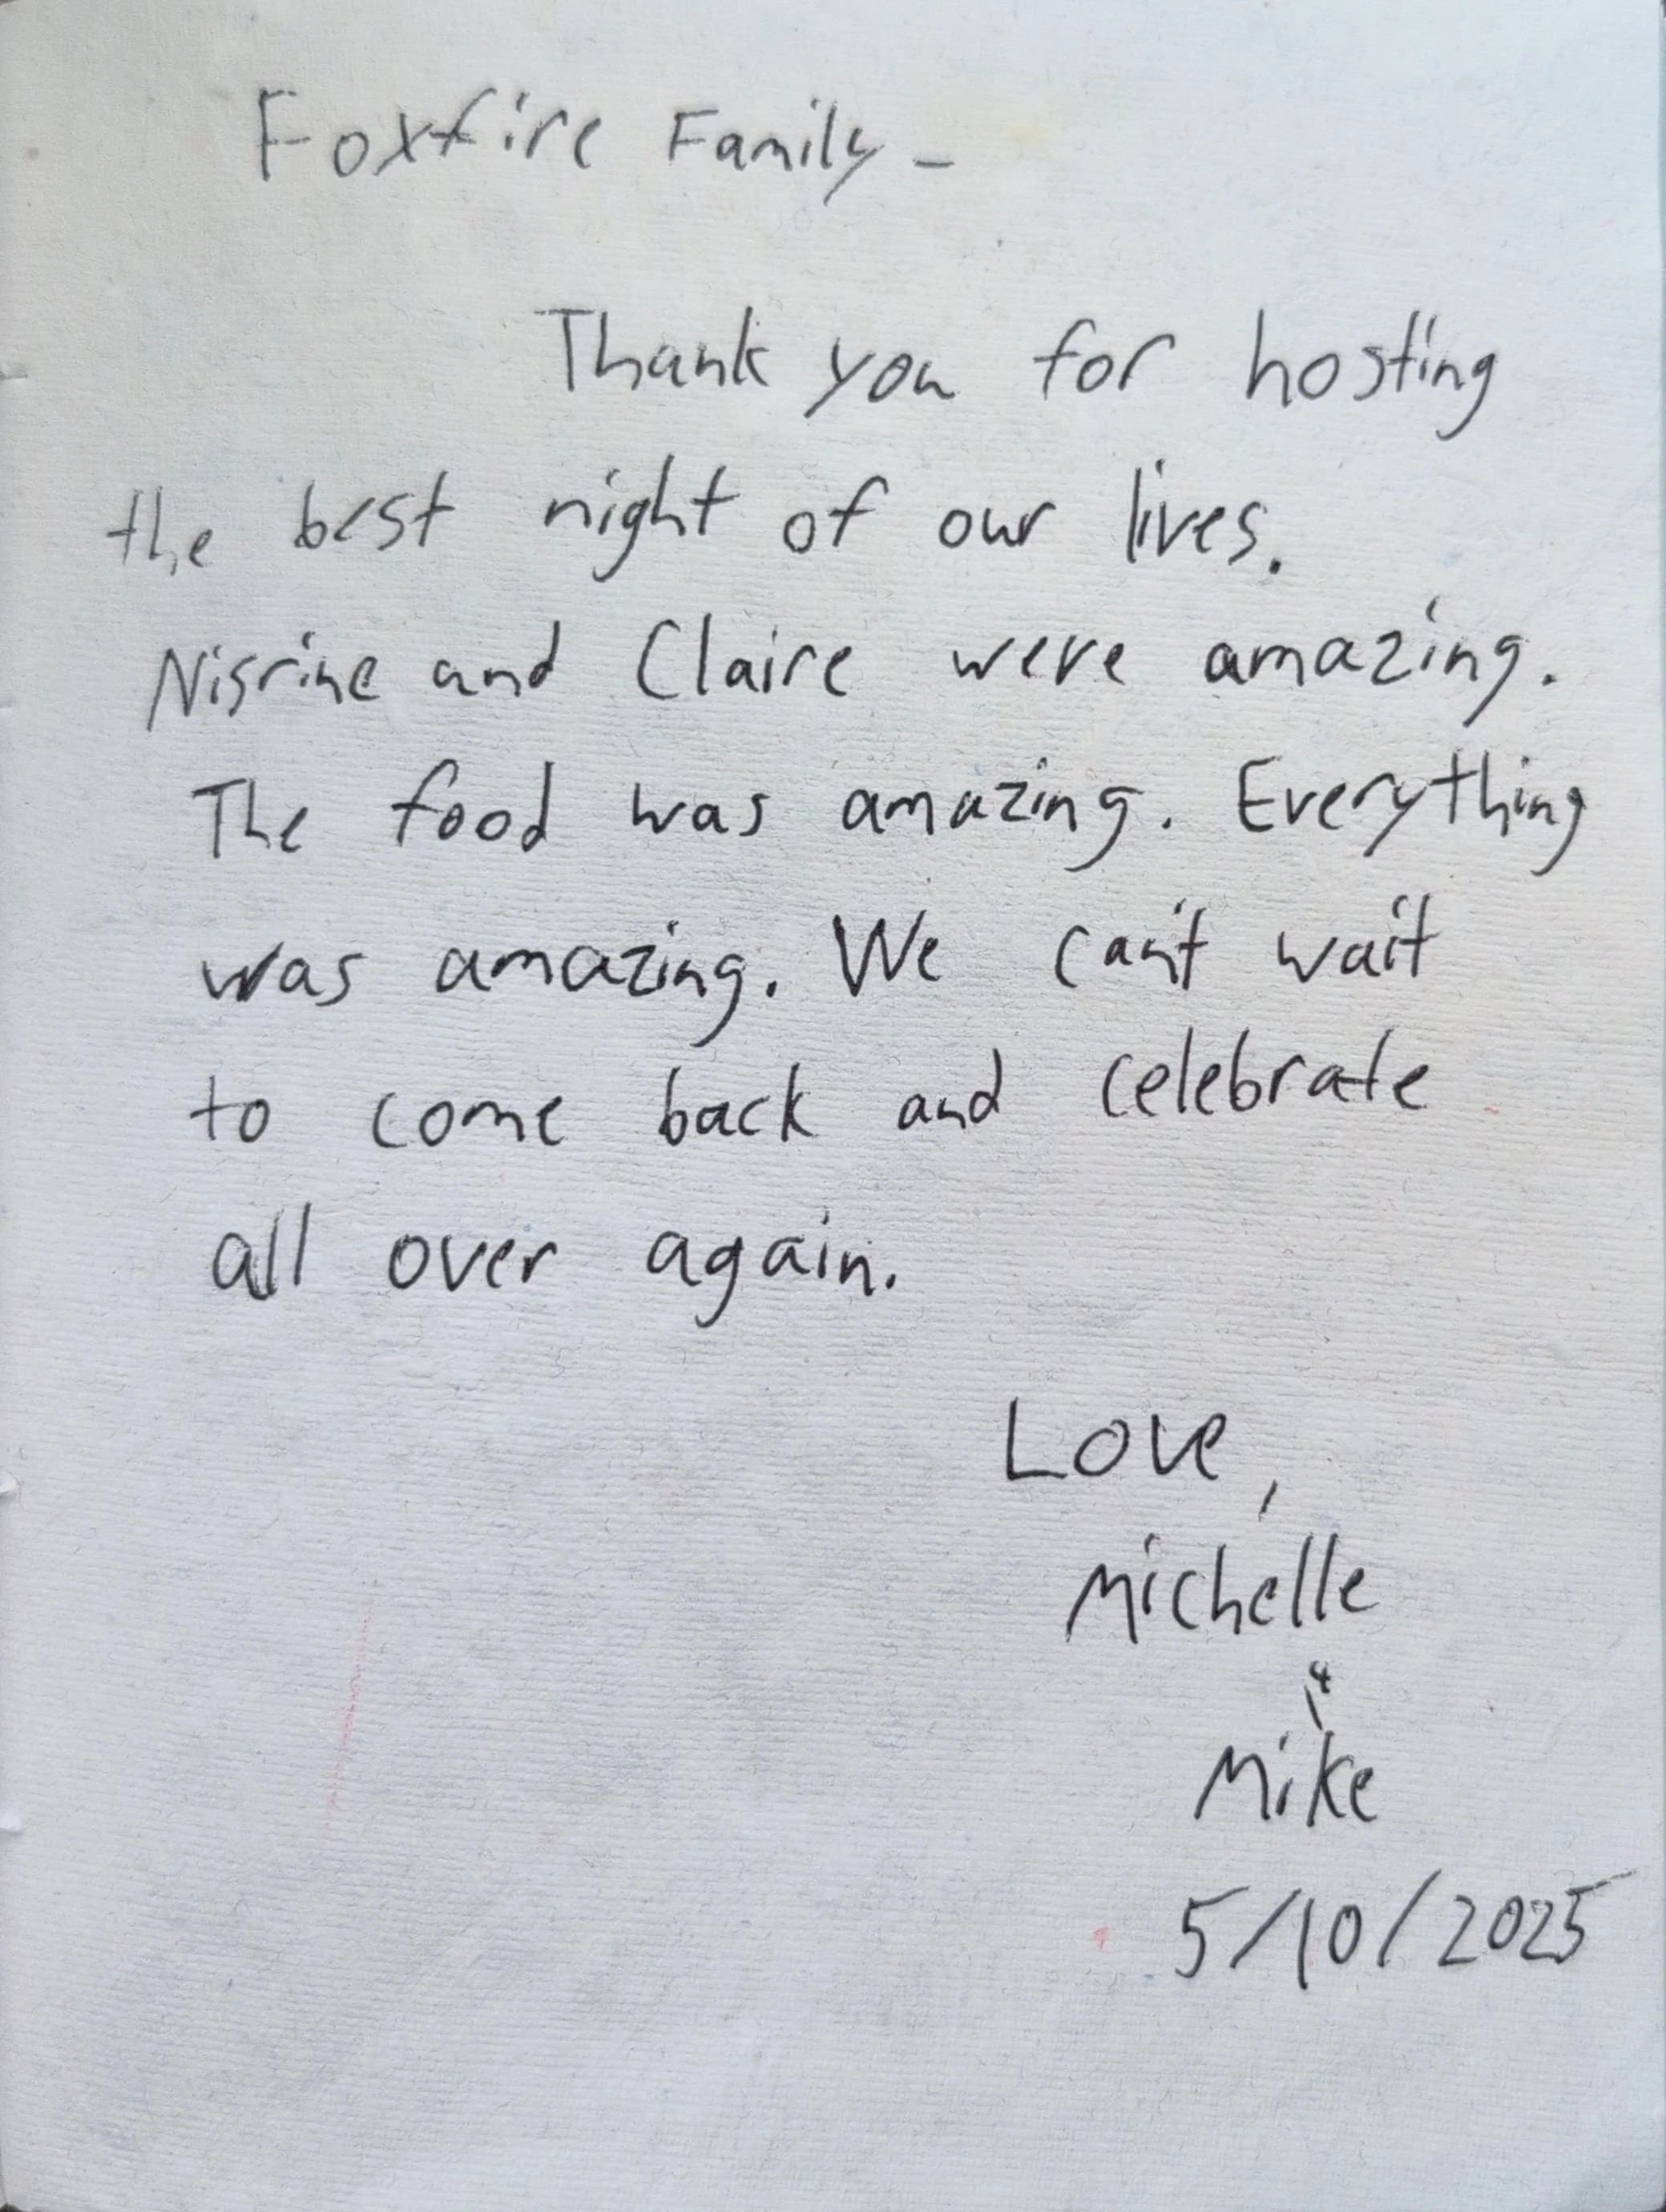 Foxfire Family -
Thank you for hosting
the best night of our lives.
Nisrine and Claire were amazing.
The food was amazing. Everything
was amazing. We can't wait
to come back and celebrate
all over again.
Love,
Michelle
&
Mike
5/10/2025